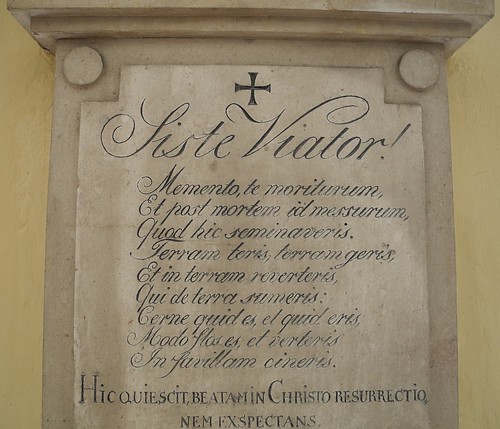 Siste Viator!
Memento, te moriturum,
Et post mortem id messurum,
Quod hic seminaveris.
Terram teris, terram geris,
Et in terram reverteris,
Qui de terra sumeris:
Cerne quid es, et quid eris,
Modo flos es, et verteris
In favillam cineris.
HIC QUIESCIT, BEATAM IN CHRISTO RESURRECTIO
NEM EXSPECTANS.